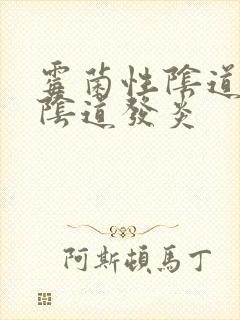 霉菌性陰道
陰道發炎
阿斯頓馬丁